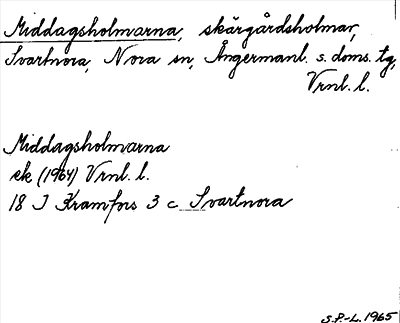 Middagsholmarna, skärgårdsholmar,
Svartnora, Nora sn, Ångermanl. s. doms. tg,
Vrnl. l.
Middagsholmarna
ek (1964) Vrnl. l.
18 I Kramfors 3 c Svartnora
S.P.-L. 1965